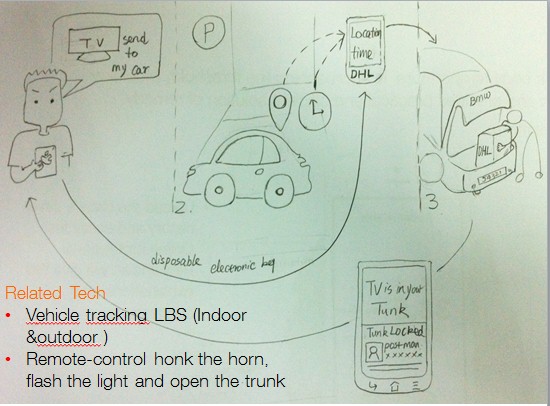 TV
send
to
my car
P
Location
time
DHL
BMW
DHL
2.
3
disposable electronic key
TV is in your
Tunk
Tunk Locked
post-man
xxxxxx
Related Tech
• Vehicle tracking LBS (Indoor
&outdoor )
• Remote-control honk the horn,
flash the light and open the trunk